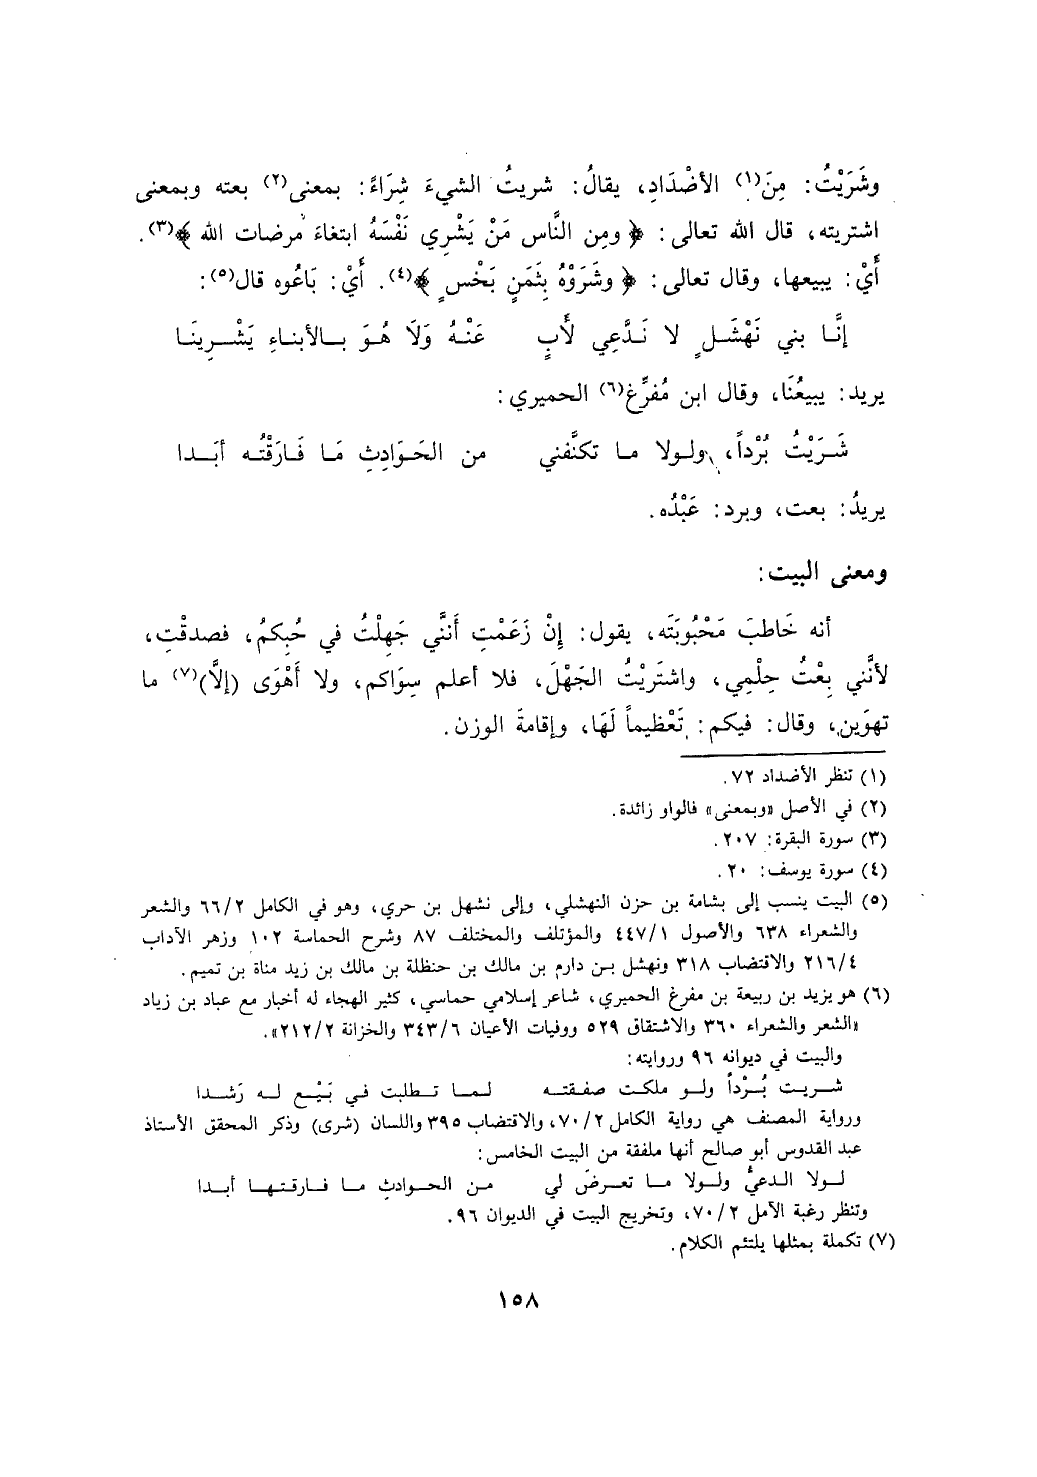 وشَرَيْتُ: مِنَ(١) الأضْدَادِ، يقالُ: شريتُ الشيءَ شِرَاءً: بمعنى(٢) بعته وبمعنى
اشتريته، قال الله تعالى: ﴿ ومِن النَّاس مَنْ يَشْرِي نَفْسَهُ ابتغاءَ مرضات الله ﴾(٣).
أَيْ: يبيعها، وقال تعالى: ﴿ وشَرَوْهُ بِثَمَنٍ بَخْسٍ ﴾(٤). أَيْ: بَاعُوه قال(٥):
إنَّا بني نَهْشَلٍ لا نَدَّعِي لأَبٍ عَنْهُ وَلَا هُوَ بالأبناءِ يَشْرِينَا
يريد: يبيعُنَا، وقال ابن مُفرِّغ(٦) الحميري:
شَرَيْتُ بُرْداً، ولولا ما تكنَّفني من الحَوَادِثِ مَا فَارَقْتُه أبَدا
يريدُ: بعت، وبرد: عَبْدُه.
ومعنى البيت:
أنه خَاطبَ مَحْبُوبَتَه، يقول: إنْ زَعَمْتِ أَنَّني جَهِلْتُ في حُبكمُ، فصدقْتِ،
لأنَّني بِعْتُ حِلْمِي، واشتَريْتُ الجَهْلَ، فلا أعلم سِوَاكم، ولا أَهْوَى (إلَّا)(٧) ما
تهوَين، وقال: فيكم: تَعْظيماً لَهَا، وإقامةَ الوزن.
(١) تنظر الأضداد ٧٢.
(٢) في الأصل «وبمعنى» فالواو زائدة.
(٣) سورة البقرة: ٢٠٧.
(٤) سورة يوسف: ٢٠.
(٥) البيت ينسب إلى بشامة بن حزن النهشلي، وإلى نشهل بن حري، وهو في الكامل ٦٦/٢ والشعر
والشعراء ٦٣٨ والأصول ٤٤٧/١ والمؤتلف والمختلف ٨٧ وشرح الحماسة ١٠٢ وزهر الآداب
٢١٦/٤ والاقتضاب ٣١٨ ونهشل بن دارم بن مالك بن حنظلة بن مالك بن زيد مناة بن تميم.
(٦) هو يزيد بن ربيعة بن مفرغ الحميري، شاعر إسلامي حماسي، كثير الهجاء له أخبار مع عباد بن زياد
«الشعر والشعراء ٣٦٠ والاشتقاق ٥٢٩ ووفيات الأعيان ٣٤٣/٦ والخزانة ٢١٢/٢».
والبيت في ديوانه ٩٦ وروايته:
شريت بُرْداً ولو ملكت صفقته لما تطلبت في بَيْعٍ له رَشدا
ورواية المصنف هي رواية الكامل ٧٠/٢، والاقتضاب ٣٩٥ واللسان (شرى) وذكر المحقق الأستاذ
عبد القدوس أبو صالح أنها ملفقة من البيت الخامس:
لولا الدعيُّ ولولا ما تعرضَ لي من الحوادثِ ما فارقتها أبدا
وتنظر رغبة الآمل ٧٠/٢، وتخريج البيت في الديوان ٩٦.
(٧) تكملة بمثلها يلتئم الكلام.
١٥٨